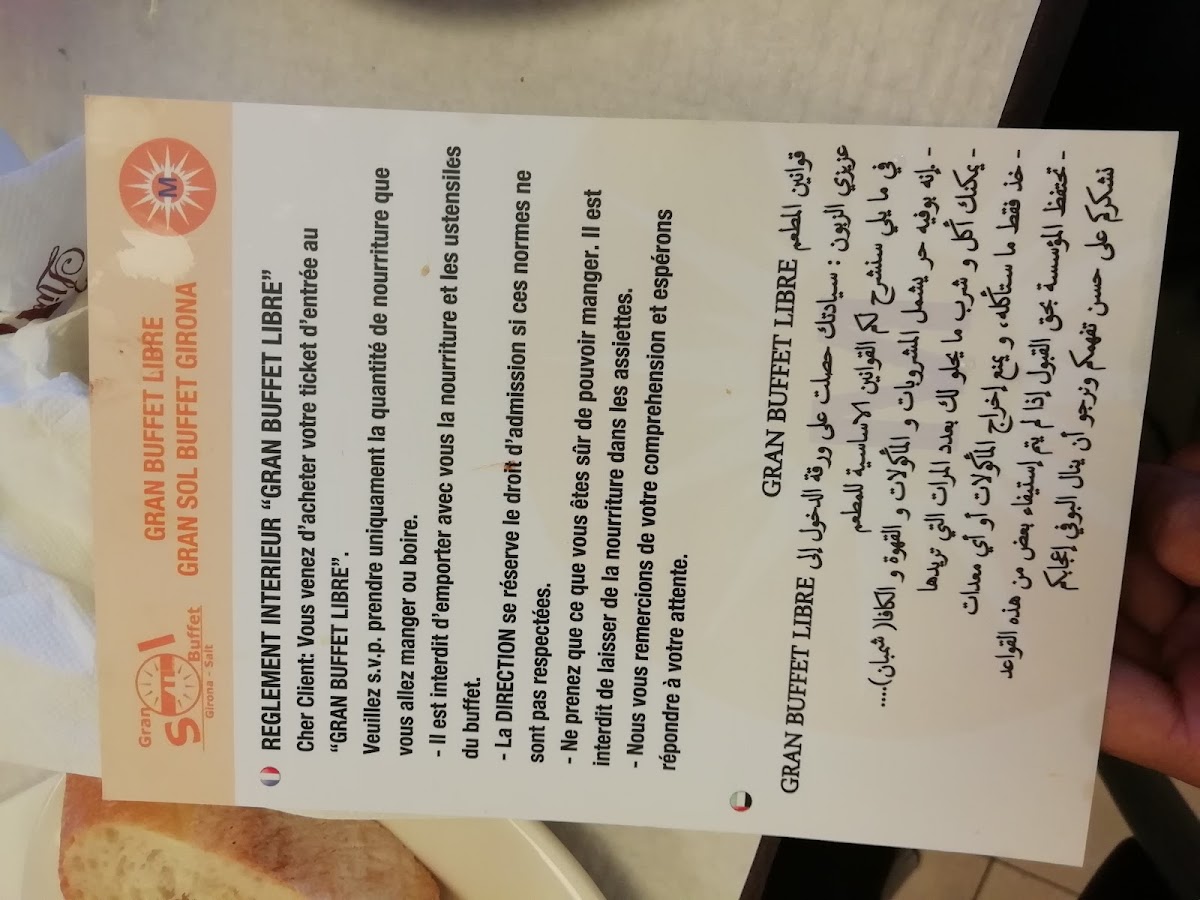 GRAN BUFFET LIBRE
GRAN SOL BUFFET GIRONA
M
Gran
SOL
Buffet
Girona - Salt
REGLEMENT INTERIEUR “GRAN BUFFET LIBRE”
Cher Client: Vous venez d’acheter votre ticket d’entrée au
“GRAN BUFFET LIBRE”.
Veuillez s.v.p. prendre uniquament la quantité de nourriture que
vous allez manger ou boire.
- Il est interdit d’emporter avec vous la nourriture et les ustensiles
du buffet.
- La DIRECTION se réserve le droit d’admission si ces normes ne
sont pas respectées.
- Ne prenez que ce que vous êtes sûr de pouvoir manger. Il est
interdit de laisser de la nourriture dans les assiettes.
- Nous vous remercions de votre comprehension et espérons
répondre à votre attente.
قوانين المطعم GRAN BUFFET LIBRE
عزيزي الزبون : سيادتك حصلت على ورقة الدخول إلى GRAN BUFFET LIBRE
في ما يلي سنشرح لكم القوانين الاساسية للمطعم
- .إنه بوفيه حر يشمل المشروبات و المأكولات و القهوة و الكافا( شمبان)....
- يمكنك أكل و شرب ما يحلو لك بعدد المرات التي تريدها
- خذ فقط ما ستأكله، و يمنع إخراج المأكولات أو أي معدات
- تحتفظ المؤسسة بحق القبول إذا لم يتم إستيفاء بعض من هذه القواعد
نشكركم على حسن تفهمكم ونرجو أن ينال البوفي إعجابكم